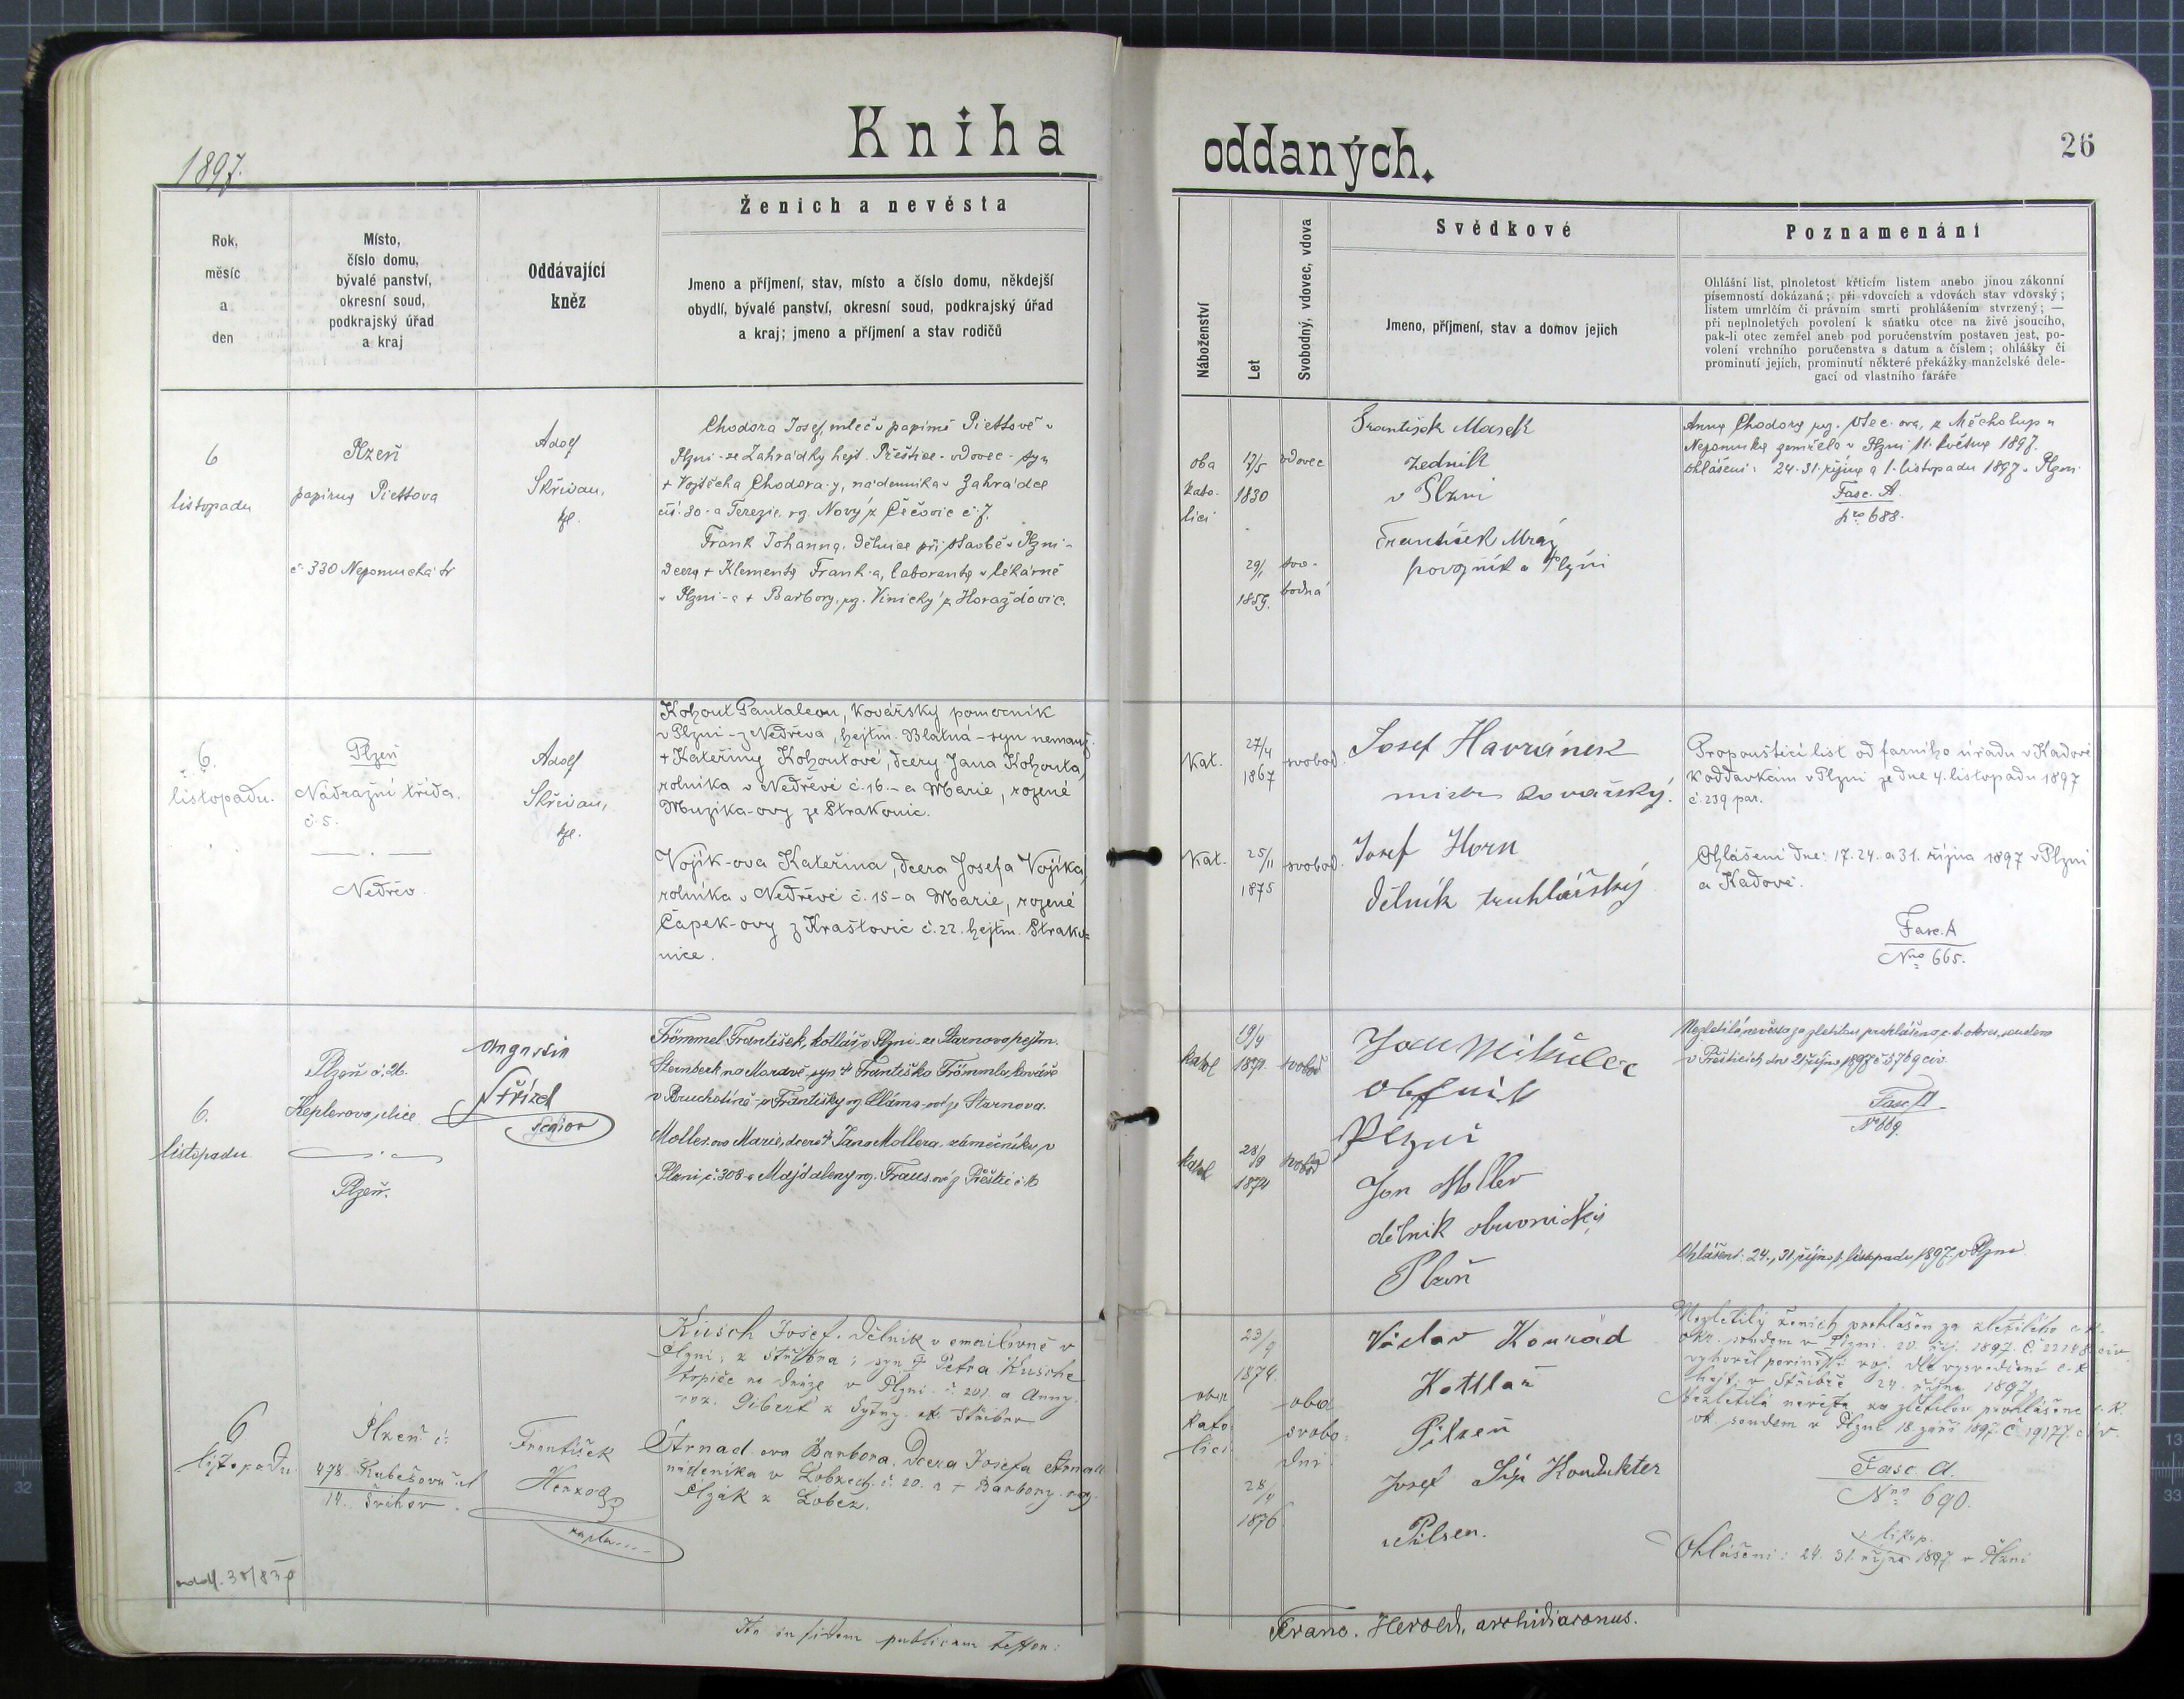 Kniha
oddaných.
26
1897.
Rok,
měsíc
a
den
Místo,
číslo domu,
bývalé panství,
okresní soud,
podkrajský úřad
a kraj
Oddávající
kněz
Ženich a nevěsta
Jmeno a příjmení, stav, místo a číslo domu, někdejší
obydlí, bývalé panství, okresní soud, podkrajský úřad
a kraj; jmeno a příjmení a stav rodičů
Náboženství
Let
Svobodný, vdovec, vdova
Svědkové
Jmeno, příjmení, stav a domov jejich
Poznamenání
Ohlášní list, plnoletost křticím listem anebo jinou zákonní
písemností dokázaná; při vdovcích a vdovách stav vdovský;
listem umrlčím či právním smrti prohlášením stvrzený; —
při neplnoletých povolení k sňatku otce na živě jsoucího,
pak-li otec zemřel aneb pod poručenstvím postaven jest, po-
volení vrchního poručenstva s datum a číslem; ohlášky či
prominutí jejich, prominutí některé překážky manželské dele-
gací od vlastního faráře
6
listopadu
Plzeň
papírna Piettova
č. 330 Nepomucká tř
Adolf
Skřivan,
kpl.
Chodora Josef, mleč v papírně Piettově v
Plzni - ze Zahrádky hejt. Přeštice - vdovec - syn
+ Vojtěcha Chodora-y, nádenníka v Zahrádce
čís. 30 - a Terezie, rz. Nový z Čečovic č. 7.
Frank Johanna, dělnice při stavbě v Plzni -
dcera + Klementa Frank-a, laboranta v lékárně
v Plzni - a + Barbory, rz. Vinický z Horažďovic.
oba
kato-
líci
17/5
1830
vdovec
29/1
1859.
svo-
bodná
František Masek
zedník
v Plzni
František Mráz
povozník v Plzni
Anna Chodora rz. z Měcholup u
Nepomuka zemřela v Plzni 11. května 1897.
Ohlášení: 24. 31. října a 1. listopadu 1897 v Plzni.
Fasc. A.
Nro 688.
6.
listopadu.
Plzeň
Nádražní třída.
č. 5.
Nedřev.
Adolf
Skřivan,
kpl.
Kohout Pantaleon, kovářský pomocník
v Plzni - z Nedřeva, hejtm. Blatná - syn nemanž.
+ Kateřiny Kohoutové, dcery Jana Kohouta,
rolníka v Nedřevě č. 16. - a Marie, rozené
Muzika-ovy ze Strakonic.
Vojík-ova Kateřina, dcera Josefa Vojíka,
rolníka v Nedřevě č. 15 - a Marie, rozené
Čapek-ovy z Kraštovic č. 22. hejtm. Strako=
nice.
Kat.
27/4
1867
svobod.
Kat.
25/11
1875
svobod.
Josef Havránek
mistr kovářský.
Josef Horn
dělník truhlářský
Propouštěcí list od farního úřadu v Kadově
k oddavkám v Plzni ze dne 4. listopadu 1897
č. 239 par.
Ohlášení dne: 17. 24. a 31. října 1897 v Plzni
a Kadově.
Fasc. A
Nro 665.
6.
listopadu
Plzeň č. 26.
Keplerova ulice
Plzeň.
Augustin
Střízel
senior
Frömmel František, kotlář v Plzni - ze Starnova hejtm.
Sternberk na Moravě - syn + Františka Frömmla, kováře
Moller-ova Marie, dcera + Jana Mollera, zámečníka v
Plzni, č. 308 - a Majdaleny rz. Fraus-ové z Přeštic
katol
19/4
1871.
svobod
katol
28/8
1874
svobod
Jan Mikulec
Plzni
Jan Moller
dělník obuvnický
Plzeň
Nezletilá nevěsta za zletilou prohlášena c. k. okres. soudem
v Přešticích dne 21 října 1897 č. 5769 civ
Fasc. A
Nro 669.
Ohlášení: 24., 31. října, 1. listopadu 1897 v Plzni
6
listopadu
Plzeň č:
478. Rubešova ul
14. Švihov.
František
Herzog
kaplan
Kusch Josef. dělník v emailovně v
Plzni; z Stříbra; syn + Petra Kusche
topiče na dráze v Plzni č. 201. a Anny.
roz. Gibert z Sytny. ok. Stříbro
Strnad-ova Barbora. Dcera Josefa Strnada
nádeníka v Lobzech č. 20. a + Barbory roz.
Plzák z Lobez.
oba
kato-
líci
23/9
1874.
oba
svobo-
dni
28/4
1876
Václav Konrád
Kottlař
Pilzen
Josef Konduktér
Pilsen.
Nezletilý ženich prohlášen za zletilého c. k.
okr. soudem v Plzni. 20. říj. 1897. č. 22148 civ.
vyhověl povinosti voj. dle vysvědčení c. k
hejt. v Stříbře 24. října 1897.
Nezletilá nevěsta za zletilou prohlášena c. k.
ok. soudem v Plzni 18. září 1897. č. 19177. civ.
Fasc. A.
Nro 690.
listop.
Ohlášení: 24. 31. října 1897 v Plzni
Ita in fidem publicam testor:
Franc. Herold, archidiaconus.